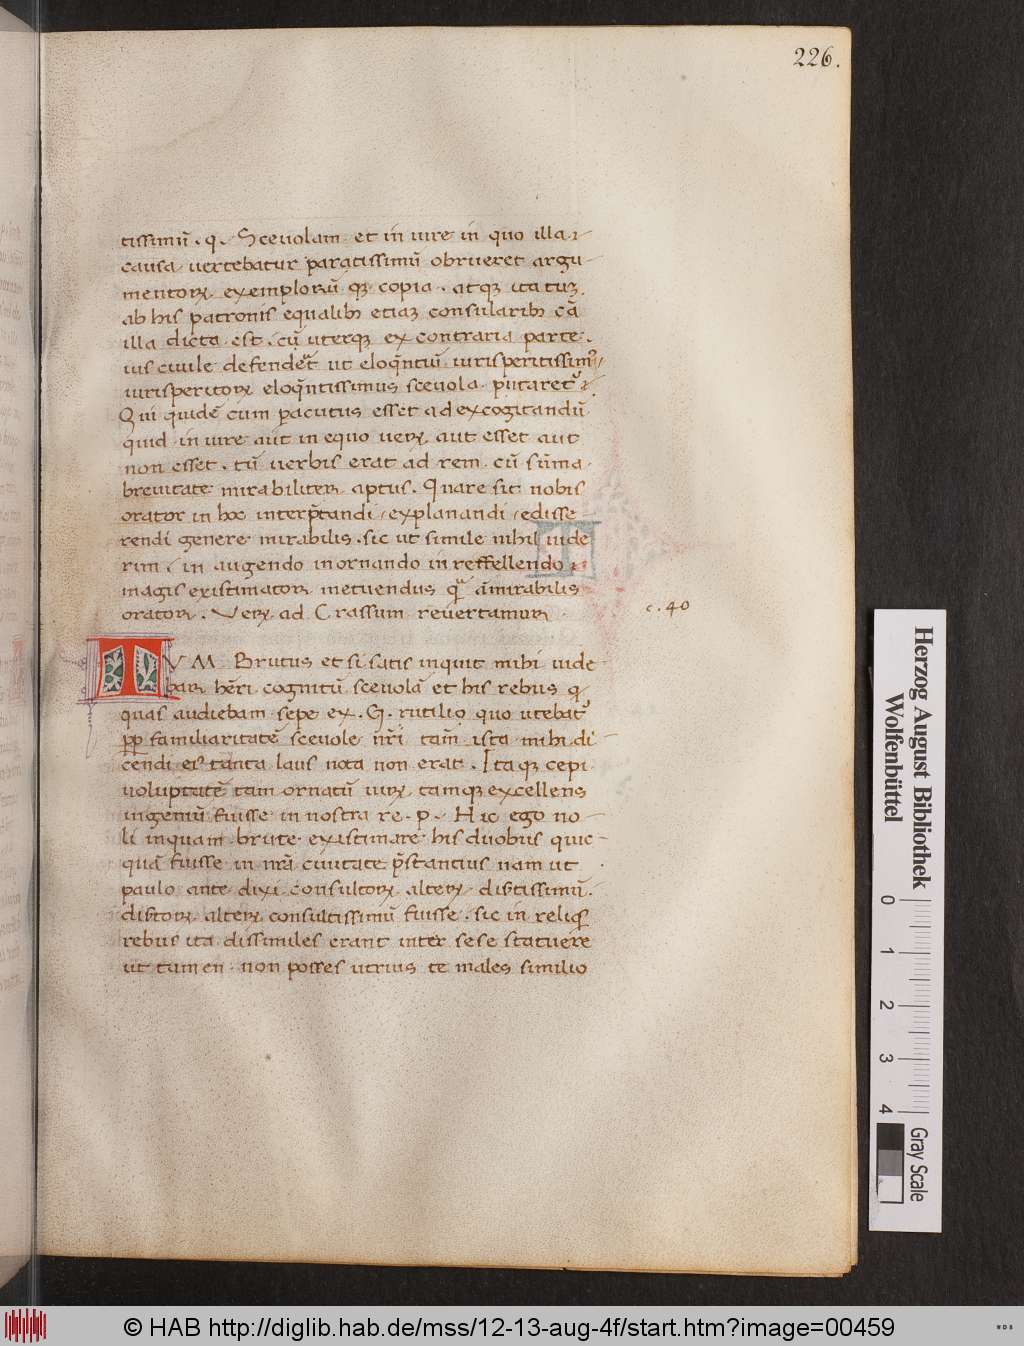 226.
tissimũ . q. Sceuolam et in iure in quo illa
causa uertebatur paratissimũ obrueret argu-
mentoꝝ exemploꝝũ qꝫ copia . atqꝫ ita tuꝫ
ab his patronis equalibꝫ etiaꝫ consularibꝫ cã
illa dicta est . cũ uterqꝫ ex contraria parte .
ius ciuile defenderet ut eloq̃ntiũ iurisperitissimꝰ
iurisperitoꝝ eloq̃ntissimus sceuola putaretᷣ
Qui quidẽ cum pacutus esset ad excogitandũ
quid in iure aut in equo ueꝝ aut esset aut
non esset . tũ uerbis erat ad rem cũ sũma
breuitate mirabiliter aptus . Quare sit nobis
orator in hoc interp̃tandi / explanandi / edisse
rendi genere mirabilis . sic ut simile nihil uide
rim / in augendo in ornando in reffellendo
magis existimator metuendus qᷓ ãmirabilis
orator . Veꝝ ad Crassum reuertamur
c. 40
TVM Brutus et si satis inquit mihi uide
bar hẽri cognitũ sceuolã et his rebus q̃
quas audiebam sepe ex . G . rutilio quo utebatᷣ
ꝓp familiaritatẽ sceuole nr̃i tam̃ ista mihi di-
cendi eiꝰ tanta laus nota non erat . Itaqꝫ cepi
uoluptatẽ tam ornatũ uiꝝ tamqꝫ excellens
ingeniũ fuisse in nostra re . p . Hic ego no-
li inquam brute existimare his duobus quic-
quã fuisse in nr̃a ciuitate p̃stantius nam ut
paulo ante dixi consultoꝝ alteꝝ disertissimũ .
disertoꝝ alteꝝ consultissimũ fuisse . sic in reliqꝫ
rebus ita dissimiles erant inter sese statuere
ut tamen non posses utrius te males similio
Herzog August Bibliothek
Wolfenbüttel
0 1 2 3 4
Gray Scale
© HAB http://diglib.hab.de/mss/12-13-aug-4f/start.htm?image=00459